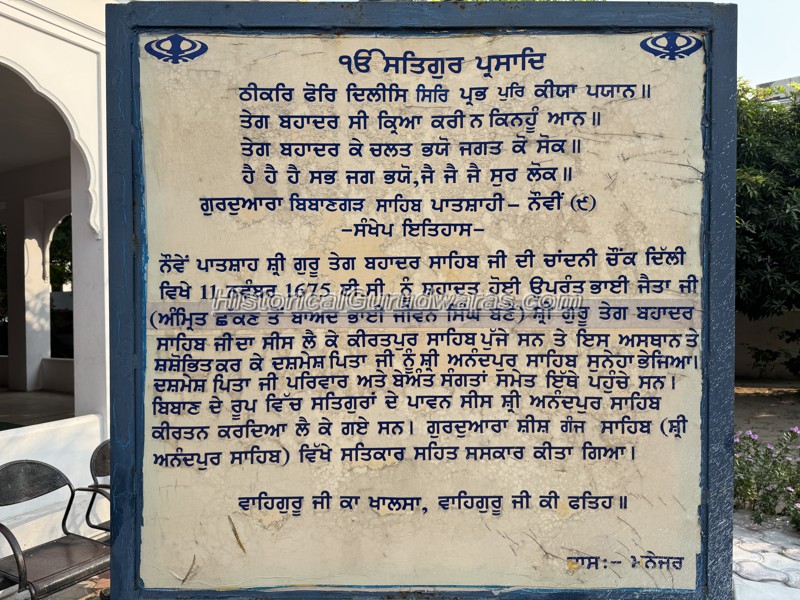 ੴ ਸਤਿਗੁਰ ਪ੍ਰਸਾਦਿ
ਠੀਕਰਿ ਫੋਰਿ ਦਿਲੀਸਿ ਸਿਰਿ ਪ੍ਰਭ ਪੁਰਿ ਕੀਯਾ ਪਯਾਨ॥
ਤੇਗ ਬਹਾਦਰ ਸੀ ਕ੍ਰਿਆ ਕਰੀ ਨ ਕਿਨਹੂੰ ਆਨ॥
ਤੇਗ ਬਹਾਦਰ ਕੇ ਚਲਤ ਭਯੋ ਜਗਤ ਕੋ ਸੋਕ॥
ਹੈ ਹੈ ਹੈ ਸਭ ਜਗ ਭਯੋ,ਜੈ ਜੈ ਜੈ ਸੁਰ ਲੋਕ॥
ਗੁਰਦੁਆਰਾ ਬਿਬਾਣਗੜ ਸਾਹਿਬ ਪਾਤਸ਼ਾਹੀ – ਨੌਵੀਂ (੯)
–ਸੰਖੇਪ ਇਤਿਹਾਸ–
ਨੌਵੇਂ ਪਾਤਸ਼ਾਹ ਸ਼੍ਰੀ ਗੁਰੂ ਤੇਗ ਬਹਾਦਰ ਸਾਹਿਬ ਜੀ ਦੀ ਚਾਂਦਨੀ ਚੌਂਕ ਦਿੱਲੀ
ਵਿਖੇ 11 ਨਵੰਬਰ 1675 ਈ.ਸੀ. ਨੂੰ ਸ਼ਹਾਦਤ ਹੋਈ ਉਪਰੰਤ ਭਾਈ ਜੈਤਾ ਜੀ
HistoricalGurudwaras.com
(ਅੰਮ੍ਰਿਤ ਛਕਣ ਤੋਂ ਬਾਅਦ ਭਾਈ ਜੀਵਨ ਸਿੰਘ ਬਣੇ) ਸ਼੍ਰੀ ਗੁਰੂ ਤੇਗ ਬਹਾਦਰ
ਸਾਹਿਬ ਜੀ ਦਾ ਸੀਸ ਲੈ ਕੇ ਕੀਰਤਪੁਰ ਸਾਹਿਬ ਪੁੱਜੇ ਸਨ ਤੇ ਇਸ ਅਸਥਾਨ ਤੇ
ਸ਼ਸ਼ੋਭਿਤ ਕਰ ਕੇ ਦਸ਼ਮੇਸ਼ ਪਿਤਾ ਜੀ ਨੂੰ ਸ਼੍ਰੀ ਅਨੰਦਪੁਰ ਸਾਹਿਬ ਸੁਨੇਹਾ ਭੇਜਿਆ।
ਦਸ਼ਮੇਸ਼ ਪਿਤਾ ਜੀ ਪਰਿਵਾਰ ਅਤੇ ਬੇਅੰਤ ਸੰਗਤਾਂ ਸਮੇਤ ਇੱਥੇ ਪਹੁੰਚੇ ਸਨ।
ਬਿਬਾਣ ਦੇ ਰੂਪ ਵਿੱਚ ਸਤਿਗੁਰਾਂ ਦੇ ਪਾਵਨ ਸੀਸ ਸ਼੍ਰੀ ਅਨੰਦਪੁਰ ਸਾਹਿਬ
ਕੀਰਤਨ ਕਰਦਿਆ ਲੈ ਕੇ ਗਏ ਸਨ। ਗੁਰਦੁਆਰਾ ਸ਼ੀਸ਼ ਗੰਜ ਸਾਹਿਬ (ਸ਼੍ਰੀ
ਅਨੰਦਪੁਰ ਸਾਹਿਬ) ਵਿੱਖੇ ਸਤਿਕਾਰ ਸਹਿਤ ਸਸਕਾਰ ਕੀਤਾ ਗਿਆ।
ਵਾਹਿਗੁਰੂ ਜੀ ਕਾ ਖਾਲਸਾ, ਵਾਹਿਗੁਰੂ ਜੀ ਕੀ ਫਤਿਹ॥
ਦਾਸ:– ਮਨੇਜਰ